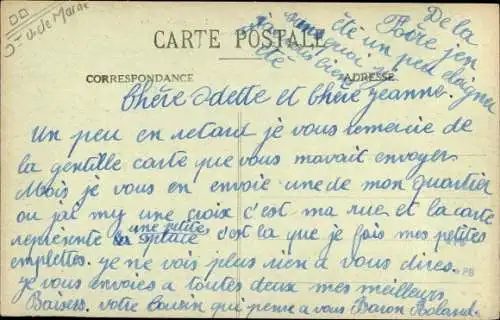 Dt V. de Marne
De la
Foire j'en
été un peu éloigner
sans quoi j'
bien
été
CARTE POSTALE
CORRESPONDANCE
ADRESSE
Chère Odette et Chère Jeanne.
Un peu en retard je vous remercie de
la gentille carte que vous mavait envoyer
Mais je vous en envoie une de mon quartier
ou jai my une croix c'est ma rue et la carte
représente une petite place c'est la que je fais mes petites
emplettes. je ne vois plus rien a vous dires.
je vous envoies a toutes deux mes meilleurs
Baisers. votre Cousin qui pense a vous Baron Roland.